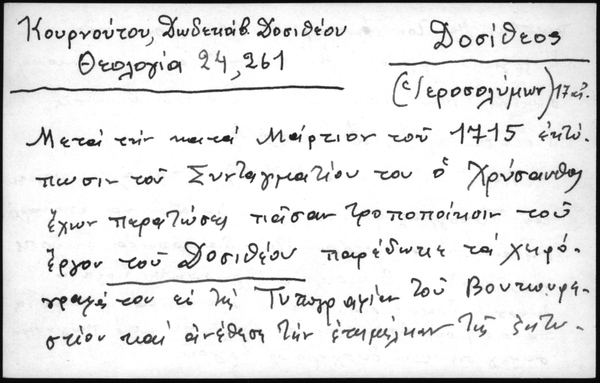 Κουρνούτου, Δωδεκάβ. Δοσιθέου
Θεολογία 24, 261
Δοσίθεος
(Ἱεροσολύμων) 17 αἰ.
Μετὰ τὴν κατὰ Μάρτιον τοῦ 1715 ἐκτύ-
πωσιν τοῦ Συνταγματίου του ὁ Χρύσανθος
ἔχων περατώσει πᾶσαν τροποποίησιν τοῦ
ἔργου τοῦ Δοσιθέου παρέδωκε τὰ χειρό-
γραφά του εἰς τὰ Τυπογραφεῖα τοῦ Βουκουρε-
στίου καὶ ἀνέθεσε τὴν ἐπιμέλειαν τῆς ἐκτυ-